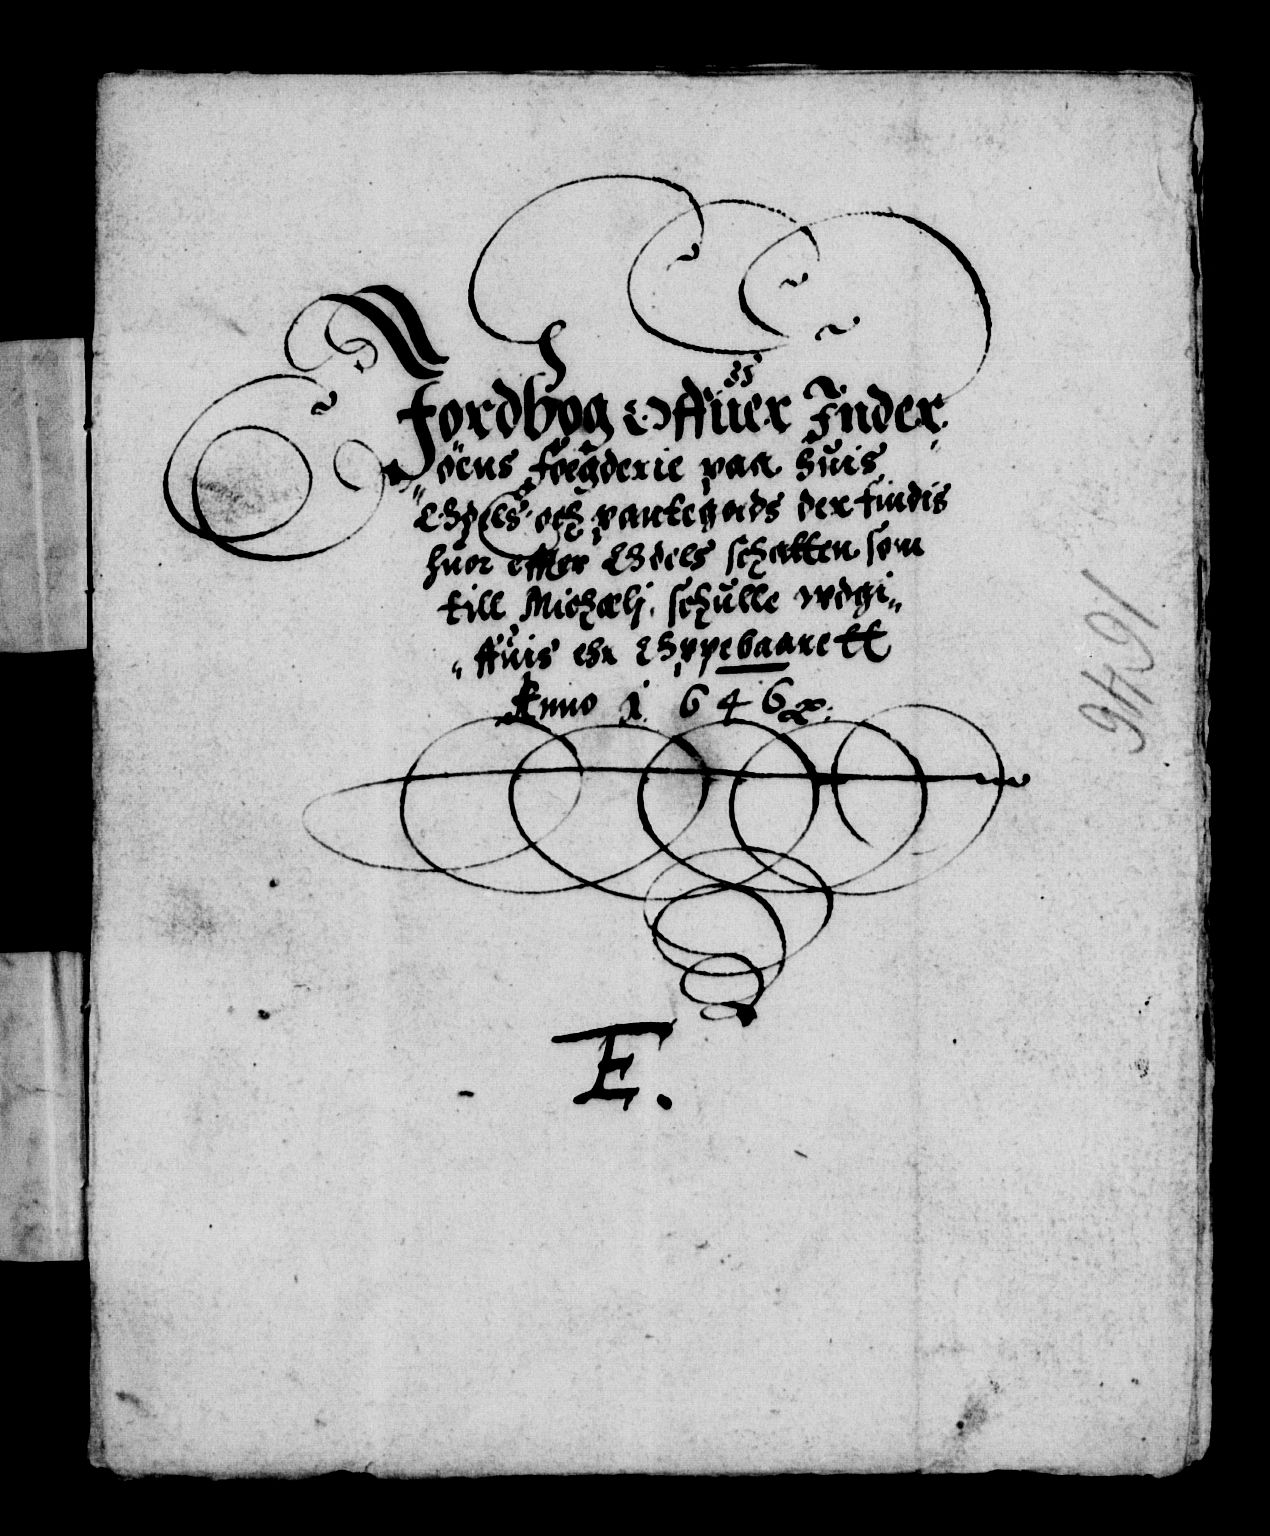 Jordbog Offuer Inder„
öens foegderie paa huis
Odels och pantegods der findis
huor effter Odels schatten som
till Michælj schulle wdgi„
„ffuis ehr Oppebaarett
Anno 1646
E.
1646